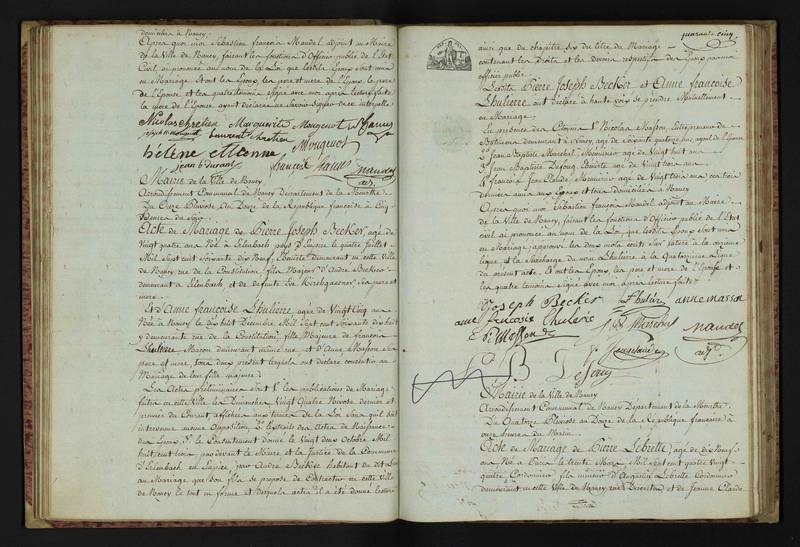 domiciliés à Nancy.
Après quoi moi Sébastien françois Mandel adjoint au Maire
de la Ville de Nancy, faisant les fonctions d'Officier public de l'Etat
Civil, ai prononcé au nom de la Loi que lesdits Epoux sont unis
en Mariage. Et ont les Epoux, les pere et mere de l'Epoux, le pere
de l'Epouse et les quatre temoins Signé avec moi après lecture faite
la mere de l'Epouse ayant déclaré ne savoir Signer de ce interpellée
Nicolas chretien Marguerite Mougenot
laurent chretien Mougenot
hélène etienne
jean b durand françois mandel
adj.
Mairie de la Ville de Nancy
Arrondissement Communal de Nancy Département de la Meurthe.
Du Onze Pluviose An Douze de la Republique françoise à Cinq
heures du Soir.
Acte de Mariage de Pierre Joseph Becker, agé de
vingt quatre ans Né à Erlenbach pays d'Empire le quatre Juillet
Mil Sept cent soixante dix Neuf, demeurant en cette Ville
de Nancy rue de la Constitution, fils Majeur d'André Becker
demeurant à Erlenbach et de défunte Eve Kirchgassner, ses pere et
mere.
Et d'Anne françoise Lhuliere agée de Vingt Cinq ans
Née à Nancy le dix huit Décembre Mil Sept cent soixante dix huit
y demeurant rue de la Constitution, fille Majeure de françois
Lhuilliere Macon demeurant même rue et d'Anne Masson ses
pere et mere, tous deux présents lesquels ont déclaré consentir au
Mariage de leur fille majeure.
Les Actes préliminaires sont 1° les publications de Mariage
faites en cette Ville les Dimanches Vingt Quatre Nivose dernier et
premier du Courant affichées aux termes de la Loi sans qu'il soit
intervenu aucune Opposition, 2° les Extraits des Actes de Naissance
des Epoux, 3° le Consentement donné le Vingt deux Octobre Mil
huit cent trois par devant le Maire et la Justice de la Commune
d'Erlenbach en Empire par André Becker habitant du dit Lieu
au Mariage que son fils se propose de Contracter en cette Ville
de Nancy le tout en forme et desquels actes il a été donné lecture
quarante cinq
ainsi que du chapitre six du titre du Mariage
contenant les Droits et les devoirs respectifs des Epoux par moi
officier public.
Lesdits Pierre Joseph Becker et Anne françoise
Lhuliere ont déclaré à haute voix se prendre Mutuellement
en Mariage.
En présence des Citoyens 1° Nicolas Masson, Entrepreneur de
Batimens demeurant à Nancy, agé de soixante quatorze ans, ayeul de l'Epouse
2° Jean Baptiste Maréchal, Menuisier agé de Vingt huit ans
3° Jean Baptiste agé de Vingt trois ans
4° françois Menuisier agé de Vingt trois ans, ces trois
derniers amis aux Epoux et tous domiciliés à Nancy
Après quoi moi Sébastien françois Mandel adjoint au Maire
de la Ville de Nancy, faisant les fonctions d'Officier public de l'Etat
civil ai prononcé au nom de la Loi, que lesdits Epoux sont unis
en Mariage, approuvé les deux mots écrits sur rature à la onzieme
ligne et la surcharge du nom Lhuliere à la Quatorzieme Ligne
du présent acte. Et ont les Epoux, les pere et mere de l'Epouse et
les quatre temoins signé avec moi après lecture faite.
P Joseph Becker f lhulier anne masson
anne francoise lhuliere
N. Masson J B Marechal mandel
adj.
J B
Mairie de la Ville de Nancy
Arrondissement Communal de Nancy Département de la Meurthe.
Du Quatorze Pluviose an Douze de la Republique françoise à
onze heures du Matin.
Acte de Mariage de Pierre Lebrette, agé de dix Neuf
ans Né à Paris le trente Mars Mil Sept cent quatre vingt
quatre Cordonnier, fils mineur d'Augustin Lebrette Cordonnier
demeurant en cette Ville de Nancy et de Jeanne Claude